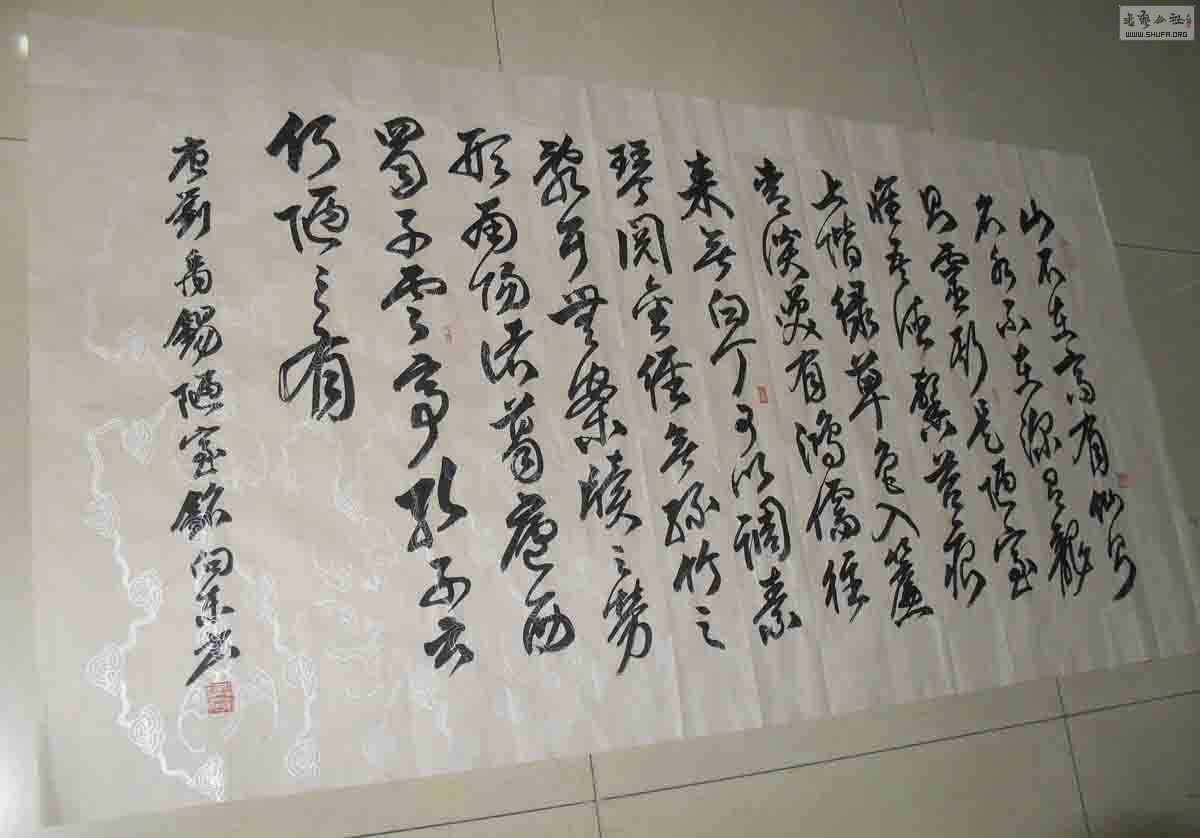 山不在高有仙則
名水不在深有龍
則靈斯是陋室
惟吾德馨苔痕
上階緑草色入簾
青談笑有鴻儒往
來無白丁可以調素
琴閱金經無絲竹之
亂耳無案牘之勞
形南陽諸葛廬西
蜀子雲亭孔子云
何陋之有
唐劉禹錫陋室銘向東書
书艺公社
WWW.SHUFA.ORG